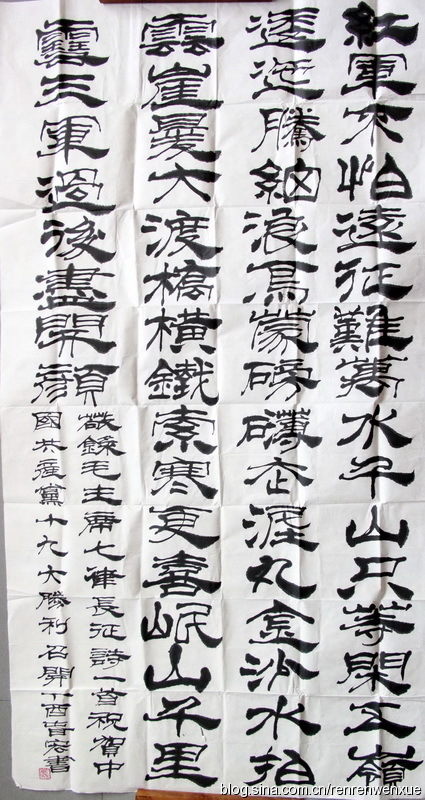 紅軍不怕遠征難萬水千山只等閑五嶺
逶迤騰細浪烏蒙磅礴走泥丸金沙水拍
雲崖暖大渡橋橫鐵索寒更喜岷山千里
雪三軍過後盡開顏
敬錄毛主席七律長征詩一首祝賀中
國共產黨十九大勝利召開丁酉書
blog.sina.com.cn/renrenwenxue